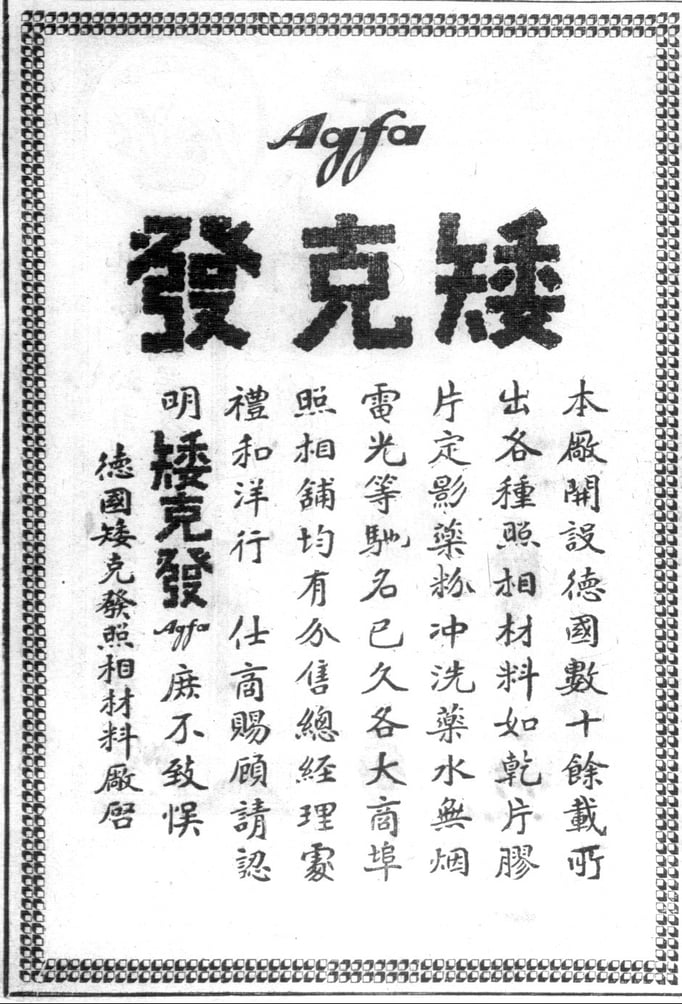 Agfa
矮克發
本廠開設德國數十餘載所
出各種照相材料如乾片膠
片定影藥粉冲洗藥水無烟
電光等馳名已久各大商埠
照相舖均有分售總經理處
禮和洋行 仕商賜顧請認
明矮克發Agfa庶不致悮
德國矮克發照相材料廠啓